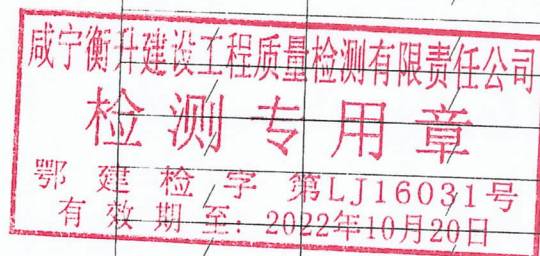 咸宁衡升建设工程质量检测有限责任公司
检测专用章
鄂建检字第LJ16031号
有效期至:2022年10月20日